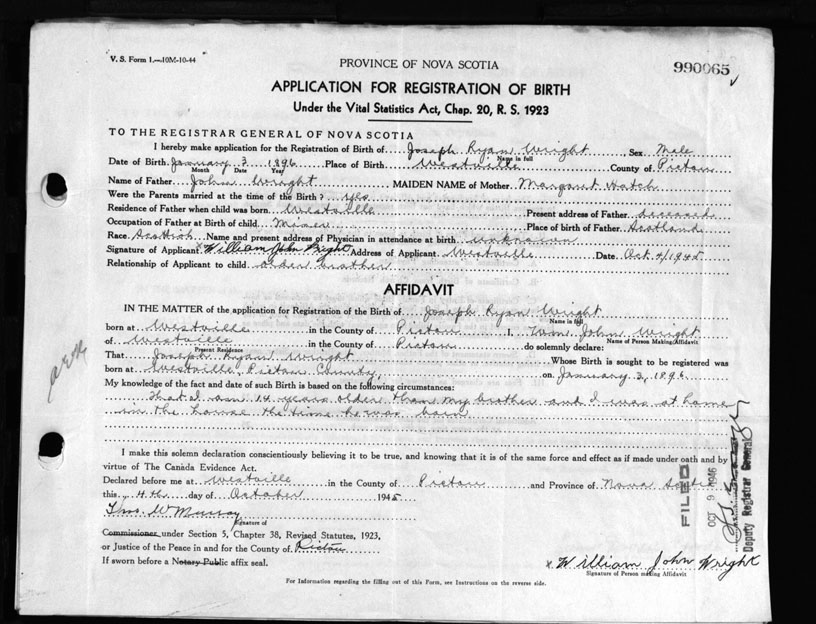 V. S. Form 1.—10M-10-44
PROVINCE OF NOVA SCOTIA
990065
APPLICATION FOR REGISTRATION OF BIRTH
Under the Vital Statistics Act, Chap. 20, R. S. 1923
TO THE REGISTRAR GENERAL OF NOVA SCOTIA
I hereby make application for the Registration of Birth of Joseph Ryan Wright, Sex Male
Name in full
Date of Birth January 3 1896 Place of Birth Westville County of Pictou
Month Date Year
Name of Father John Wright MAIDEN NAME of Mother Margaret Hatch
Were the Parents married at the time of the Birth? yes
Residence of Father when child was born Westville Present address of Father deceased
Occupation of Father at Birth of child Miner Place of birth of Father Scotland
Race Scottish Name and present address of Physician in attendance at birth unknown
Signature of Applicant William John Wright Address of Applicant Westville Date Oct 4/1945
Relationship of Applicant to child older brother
AFFIDAVIT
IN THE MATTER of the application for Registration of the Birth of Joseph Ryan Wright
Name in full
born at Westville in the County of Pictou I, Wm John Wright
Name of Person Making Affidavit
of Westville in the County of Pictou do solemnly declare:
Present Residence
That Joseph Ryan Wright Whose Birth is sought to be registered was
born at Westville, Pictou County, on January 3, 1896
My knowledge of the fact and date of such Birth is based on the following circumstances:
That I am 14 years older than my brother and I was at home
in the house the time he was born
I make this solemn declaration conscientiously believing it to be true, and knowing that it is of the same force and effect as if made under oath and by
virtue of The Canada Evidence Act.
Declared before me at Westville in the County of Pictou and Province of Nova Scotia
this 4th day of October 1945
Thos W Murray
Signature of
Commissioner under Section 5, Chapter 38, Revised Statutes, 1923,
or Justice of the Peace in and for the County of Pictou
If sworn before a Notary Public affix seal.
x William John Wright
Signature of Person making Affidavit
For Information regarding the filling out of this Form, see Instructions on the reverse side.
FILED OCT 9 1946
Deputy Registrar General